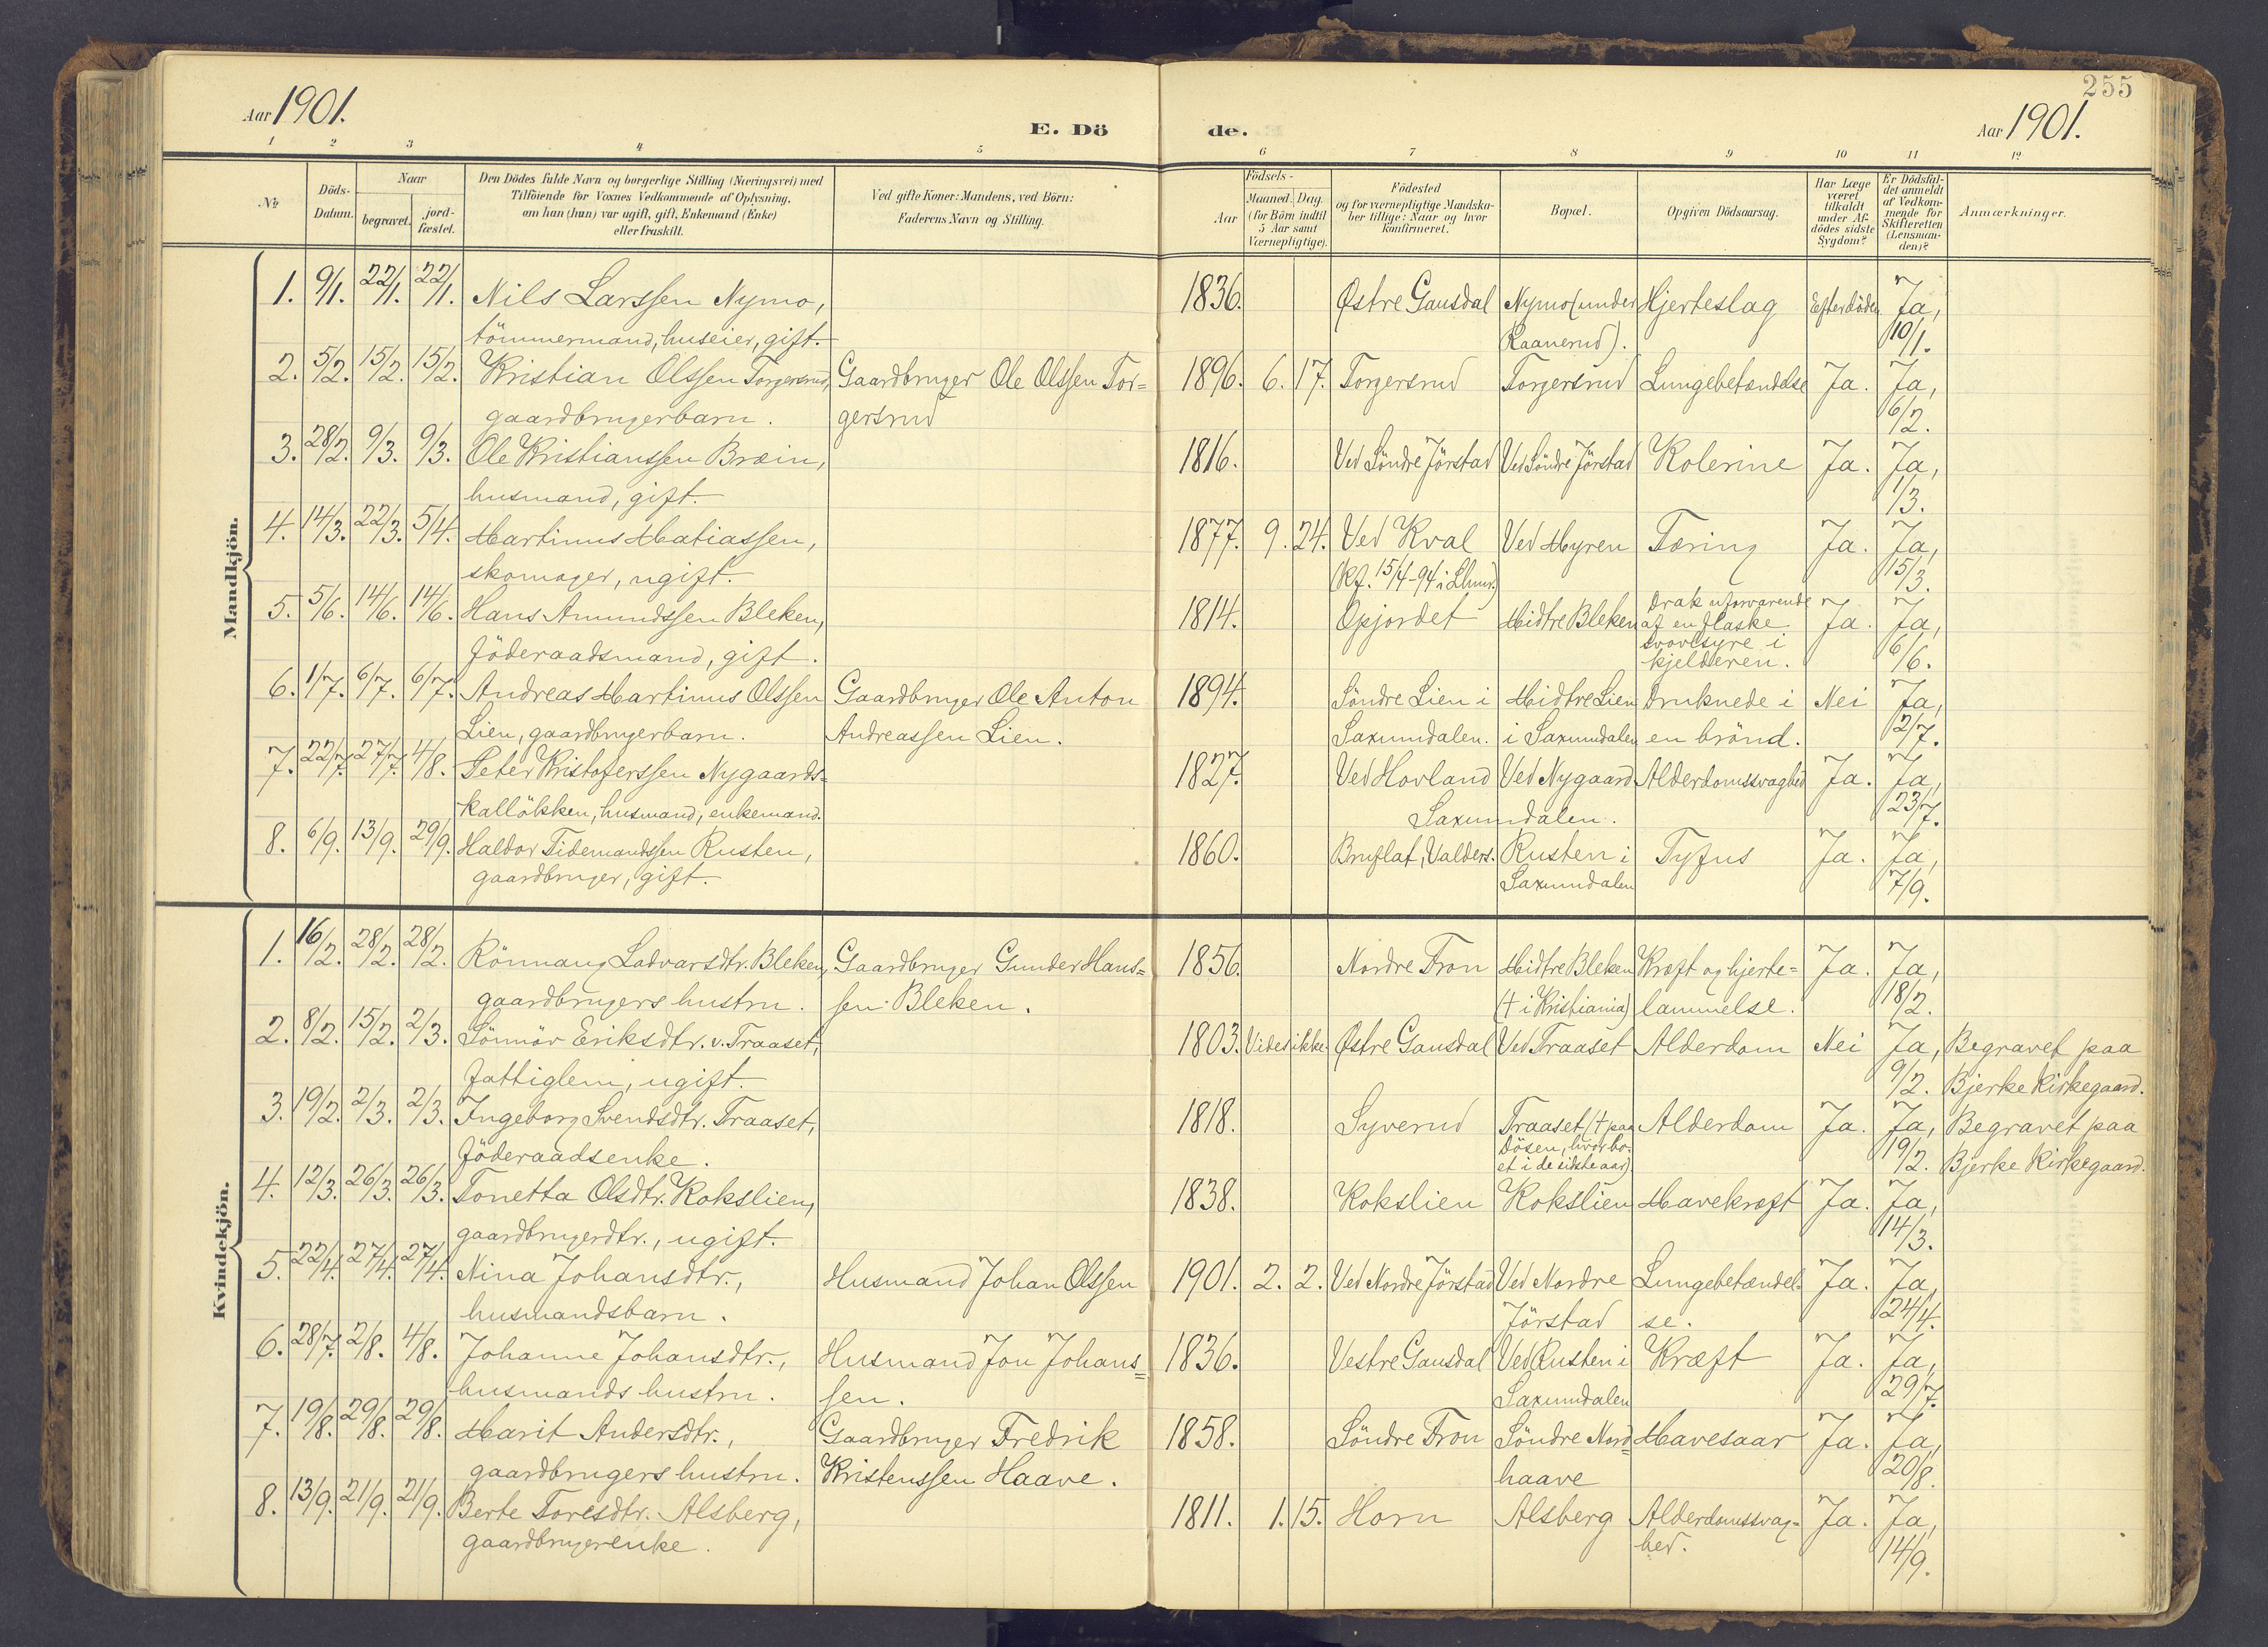 255
Aar 1901.
E. Dö
de.
Aar 1901.
1 2 3 4 5 6 7 8 9 10 11 12
№
Döds-
Datum.
Naar
begravet.
jord-
fæstet.
Den Dödes fulde Navn og borgerlige Stilling (Næringsvei) med
Tilföiende for Voxnes Vedkommende af Oplysning,
om han (hun) var ugift, gift, Enkemand (Enke)
eller fraskilt.
Ved gifte Koner: Mandens, ved Börn:
Faderens Navn og Stilling.
Födsels-
Aar
Maaned. Dag.
(for Börn indtil
5 Aar samt
Værnepligtige).
Födested
og for værnepligtige Mandska-
ber tillige: Naar og hvor
konfirmeret.
Bopæl.
Opgiven Dödsaarsag.
Har Læge
været
tilkaldt
under Af-
dödes sidste
Sygdom?
Er Dödsfal-
det anmeldt
af Vedkom-
mende for
Skifteretten
(Lensman-
den)?
Anmærkninger.
Mandkjön.
1. 9/1. 22/1. 22/1. Nils Larssen Nymo, 1836. Østre Gausdal Nymo (under Hjerteslag Efter döden Ja,
tömmermand, huseier, gift. Raanerud). 10/1.
2. 5/2. 15/2. 15/2. Kristian Olssen Torgersrud, Gaardbruger Ole Olssen Tor= 1896. 6. 17. Torgersrud Torgersrud Lungebetændelse Ja. Ja,
gaardbrugerbarn. gersrud 6/2.
3. 28/2. 9/3. 9/3. Ole Kristianssen Bræin, 1816. Ved Söndre Jörstad Ved Söndre Jörstad Kolerine Ja. Ja,
husmand, gift. 1/3.
4. 14/3. 22/3. 5/4. Martinus Matiassen, 1877. 9. 24. Ved Kval Ved Myren Tæring Ja. Ja,
skomager, ugift. Kf. 15/4-94 i Lhmr.) 15/3.
5. 5/6. 14/6. 14/6. Hans Amundssen Bleken, 1814. Opjordet Midtre Bleken Drak uforvarende Ja. Ja,
af en flaske
föderaadsmand, gift. svovlsyre i 6/6.
kjelderen.
6. 1/7. 6/7. 6/7. Andreas Martinus Olssen Gaardbruger Ole Anton 1894. Söndre Lien i Midtre Lien Druknede i Nei Ja,
Lien, gaardbrugerbarn. Andreassen Lien. Saxumdalen. i Saxumdalen en brönd. 2/7.
7. 22/7. 27/7. 4/8. Peter Kristoferssen Nygaards= 1827. Ved Hovland Ved Nygaard Alderdomssvaghed Ja. Ja,
kallökken, husmand, enkemand. Saxumdalen. 23/7.
8. 6/9. 13/9. 29/9. Haldor Tidemandssen Rusten, 1860. Bruflat, Valders. Rusten i Tyfus Ja. Ja,
gaardbruger, gift. Saxumdalen 7/9.
Kvindekjön.
1. 16/2. 28/2. 28/2. Rönnaug Ladvarsdtr. Bleken, Gaardbruger Gunder Hans= 1856. Nordre Fron Midtre Bleken Kræft og hjerte= Ja. Ja,
gaardbrugers hustru. sen Bleken. († i Kristiania) lammelse. 18/2.
2. 8/2. 15/2. 2/3. Sönnöv Eriksdtr. v. Traaset, 1803. Vides ikke. Østre Gausdal Ved Traaset Alderdom Nei Ja, Begravet paa
fattiglem, ugift. 9/2. Bjerke Kirkegaard.
3. 19/2. 2/3. 2/3. Ingeborg Svendsdtr. Traaset, 1818. Syverud Traaset († paa Alderdom Ja. Ja, Begravet paa
Dösen, hvor bo-
föderaadsenke. et i de sidste aar) 19/2. Bjerke Kirkegaard.
4. 12/3. 26/3. 26/3. Tonetta Olsdtr. Kokslien, 1838. Kokslien Kokslien Mavekræft Ja. Ja,
gaardbrugerdtr., ugift. 14/3.
5. 22/4. 27/4. 27/4. Nina Johansdtr., Husmand Johan Olssen 1901. 2. 2. Ved Nordre Jörstad Ved Nordre Lungebetændel- Ja. Ja,
husmandsbarn. Jörstad se. 24/4.
6. 28/7. 2/8. 4/8. Johanne Johansdtr., Husmand Jon Johans= 1836. Vestre Gausdal Ved Rusten i Kræft Ja. Ja,
husmands hustru. sen. Saxumdalen 29/7.
7. 19/8. 29/8. 29/8. Marit Andersdtr., Gaardbruger Fredrik 1858. Söndre Fron Söndre Nord= Mavesaar Ja. Ja,
gaardbrugers hustru. Kristenssen Haave. haave 20/8.
8. 13/9. 21/9. 21/9. Berte Toresdtr. Alsberg, 1811. 1. 15. Horn Alsberg Alderdomssvag= Ja. Ja,
gaardbrugerenke. hed. 14/9.